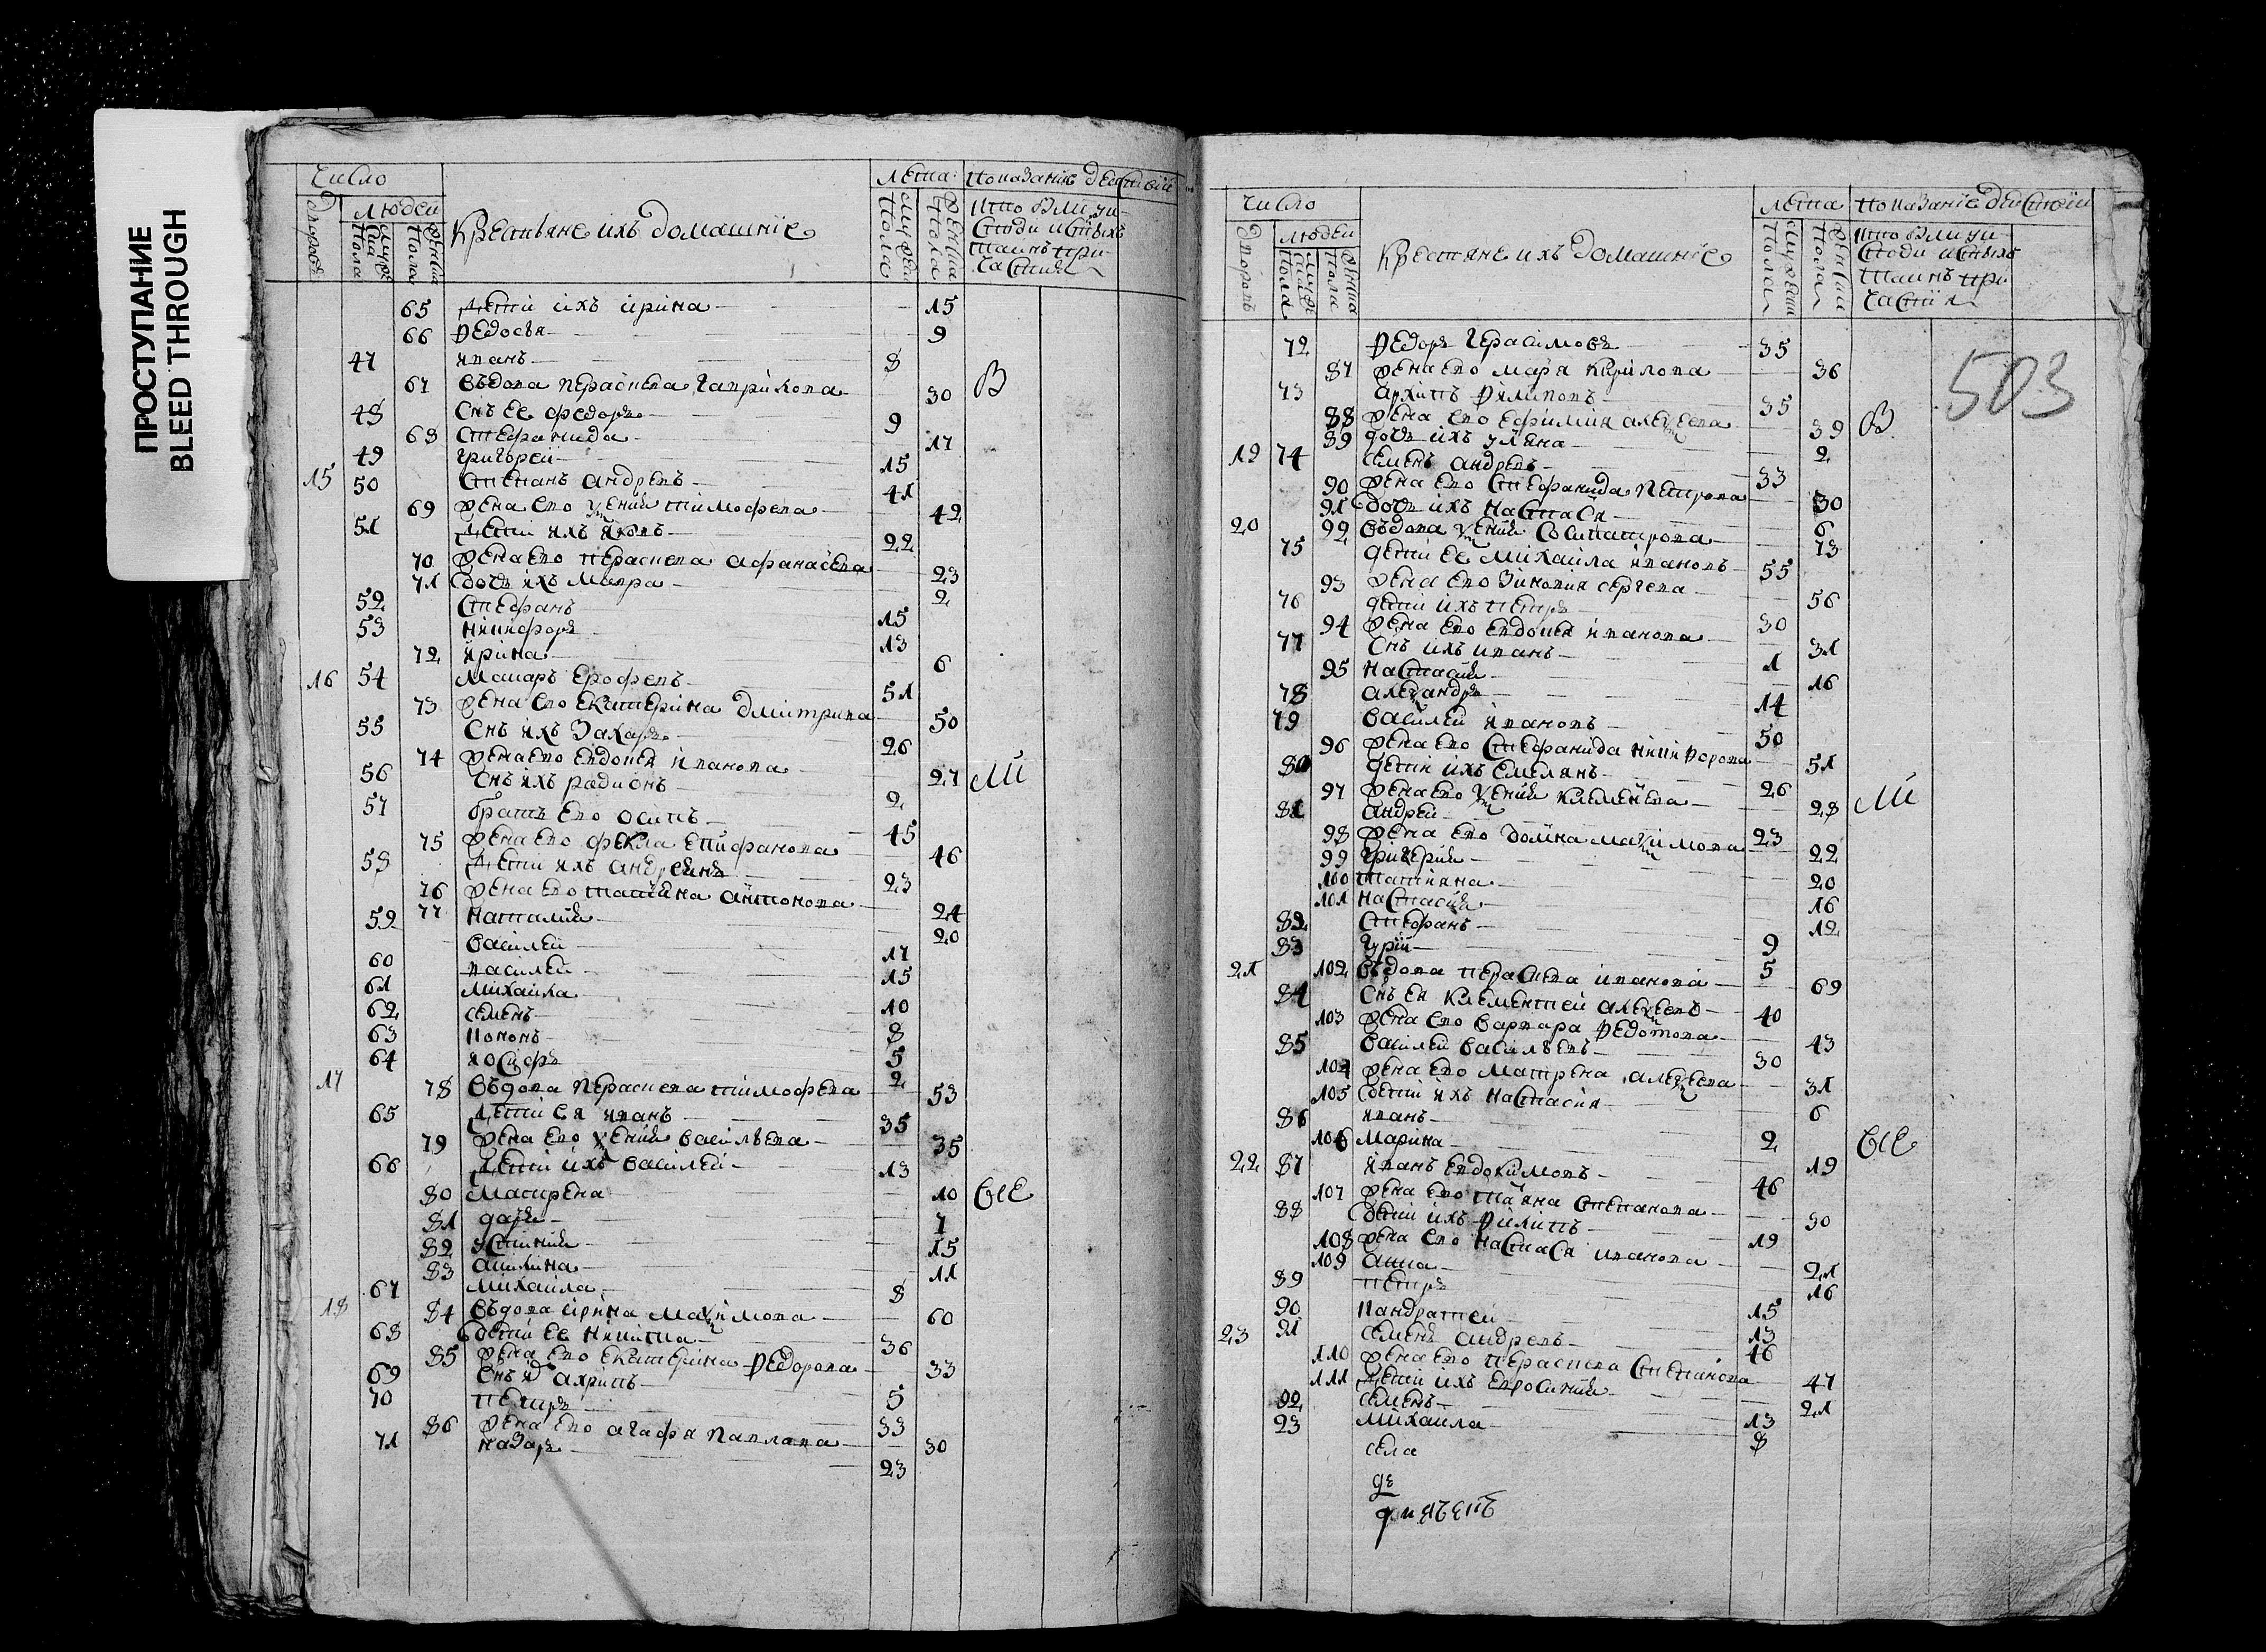 ПРОСТУПАНИЕ
BLEED THROUGH
число
лета показание действий
дворовъ
людей
мужеска пола
женска пола
Крестьяне ихъ домашние
мужеска пола
женска пола
кто были у исповѣди и святыхъ таинъ причастия
65 дети ихъ ирина 15
66 федосья 9
47 иванъ 8
67 въдова параскева гаврилова 30 В
48 снъ ее федоръ 9
68 стефанида 17
49 григорей 15
15 50 степанъ андреевъ 41
69 жена ево ксения тимофеева 42
51 дети ихъ яковъ 22
70 жена ево параскева афанасева 23
71 дочь ихъ мавра 2
52 стефанъ 15
53 никифоръ 13
72 ирина 6
16 54 макаръ ерофеевъ 51
73 жена ево екатерина дмитриева 50
55 снъ ихъ захаръ 26
74 жена ево евдокия иванова 27 ли
56 снъ ихъ радионъ 2
57 братъ ево осипъ 45
75 жена ево фекла епифанова 46
58 дети ихъ андреянъ 23
76 жена ево татияна антонова 24
77 наталия 20
59 василей 17
60 василей 15
61 михаила 10
62 семенъ 8
63 кононъ 5
64 иосифъ 2
17 78 въдова параскева тимофеева 53
65 дети ея иванъ 35
79 жена ево ксения васильева 35
66 дети ихъ василей 13
80 матрена 10 все
81 дарья 7
82 устиния 15
83 акилина 11
67 михаила 8
18 84 въдова ирина максимова 60
68 дети ее никита 36
85 жена ево екатерина федорова 33
69 снъ ихъ архипъ 5
70 петръ 33
86 жена ево агафья павлова 30
71 назаръ 23
число
лета показание действий
дворовъ
людей
мужеска пола
женска пола
Крестяне ихъ домашние
мужеска пола
женска пола
кто были у исповѣди и святыхъ таинъ причастия
503
72 федоръ герасимовъ 35
87 жена ево марья кирилова 36
73 архипъ филиповъ 35
88 жена ево ефимия алексеева 39 В
89 дочь ихъ уляна 2
19 74 семенъ андреевъ 33
90 жена ево стефанида петрова 30
91 дочь ихъ настася 6
20 92 въдова ксения сосипатрова 73
75 дети ее михаила ивановъ 55
93 жена ево зиновия сергеева 56
76 дети ихъ петръ 30
94 жена ево евдокия иванова 31
77 снъ ихъ иванъ 1
95 настасия 16
78 александръ 14
79 василей ивановъ 50
96 жена ево стефанида никифорова 51
80 дети ихъ емелянъ 26
97 жена ево ксения климентева 28 ли
81 андрей 23
98 жена ево домна максимова 22
99 гликерия 20
100 татияна 16
101 настасия 12
82 стефанъ 9
83 гурий 5
21 102 въдова параскева иванова 69
84 снъ ея климентей алексеевъ 40
103 жена ево варвара федотова 43
85 василей васильевъ 30
104 жена ево матрена алексеева 31
105 дети ихъ настасия 6
86 иванъ 2
106 марина 19 все
22 87 иванъ евдокимовъ 46
107 жена ево татияна степанова 30
88 дети ихъ филипъ 19
108 жена ево настася иванова 21
109 анна 16
89 петръ 15
90 кандратей 13
23 91 семенъ андреевъ 46
110 жена ево параскева степанова 47
111 дети ихъ евросиния 21
92 семенъ 13
93 михаила 8
села